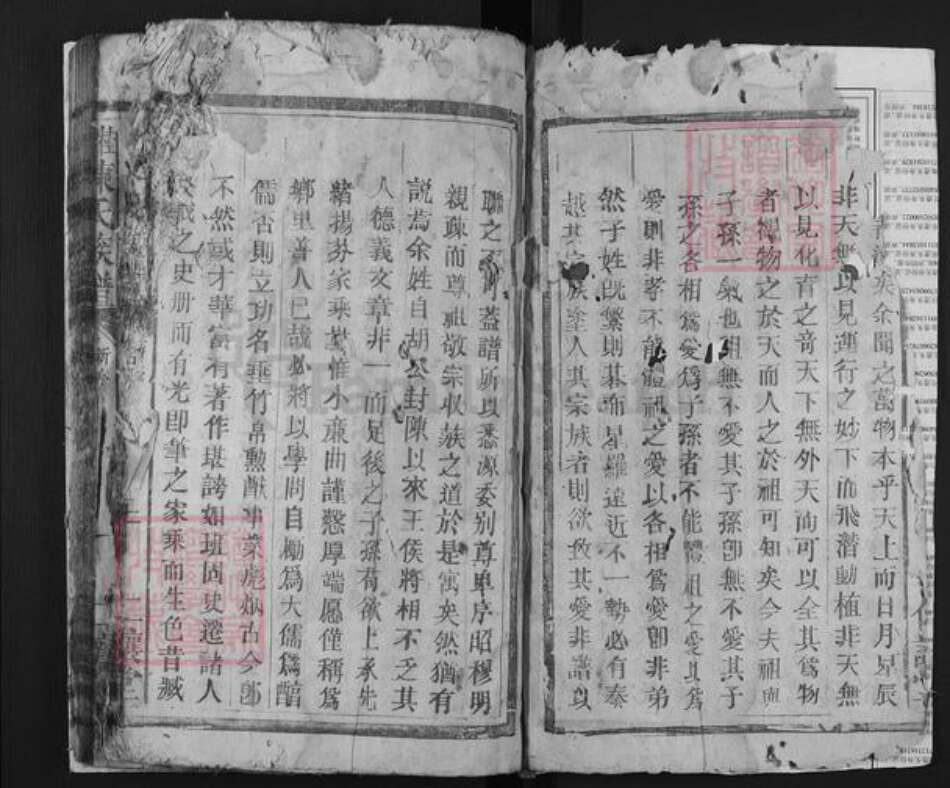 矣余聞之萬物本乎天上而日月星辰
非天無以見運行之妙下而飛潛動植非天無
以見化育之奇天下無外天而可以全其爲物
者禮物之於天而人之於祖可知矣今夫祖與
子孫一氣也祖無不愛其子孫卽無不愛其子
孫之各相爲愛爲子孫者不能體祖之愛其爲
愛則非孝不能體祖之愛以各相爲愛卽非弟
然子姓旣繁則碁布星羅遠近不一勢必有秦
越其宗族塗人其宗族者則欲救其愛非譜以
聯之不可蓋譜所以悉源委别尊卑序昭穆明
親疎而尊祖敬宗収族之道於是寓矣然猶有
説焉余姓自胡公封陳以來王侯將相不乏其
人德義文章非一而足後之子孫有欲上承先
緒揚芬家乘豈惟小亷曲謹慤厚端愿僅稱爲
鄉里善人已哉必將以學問自勵爲大儒爲醕
儒否則立功名垂竹帛勲猷事業彪炳古今卽
不然或才華富有著作堪誇如班固史遷諸人
筆之史册而有光卽筆之家乘而生色昔臧
陳氏族譜